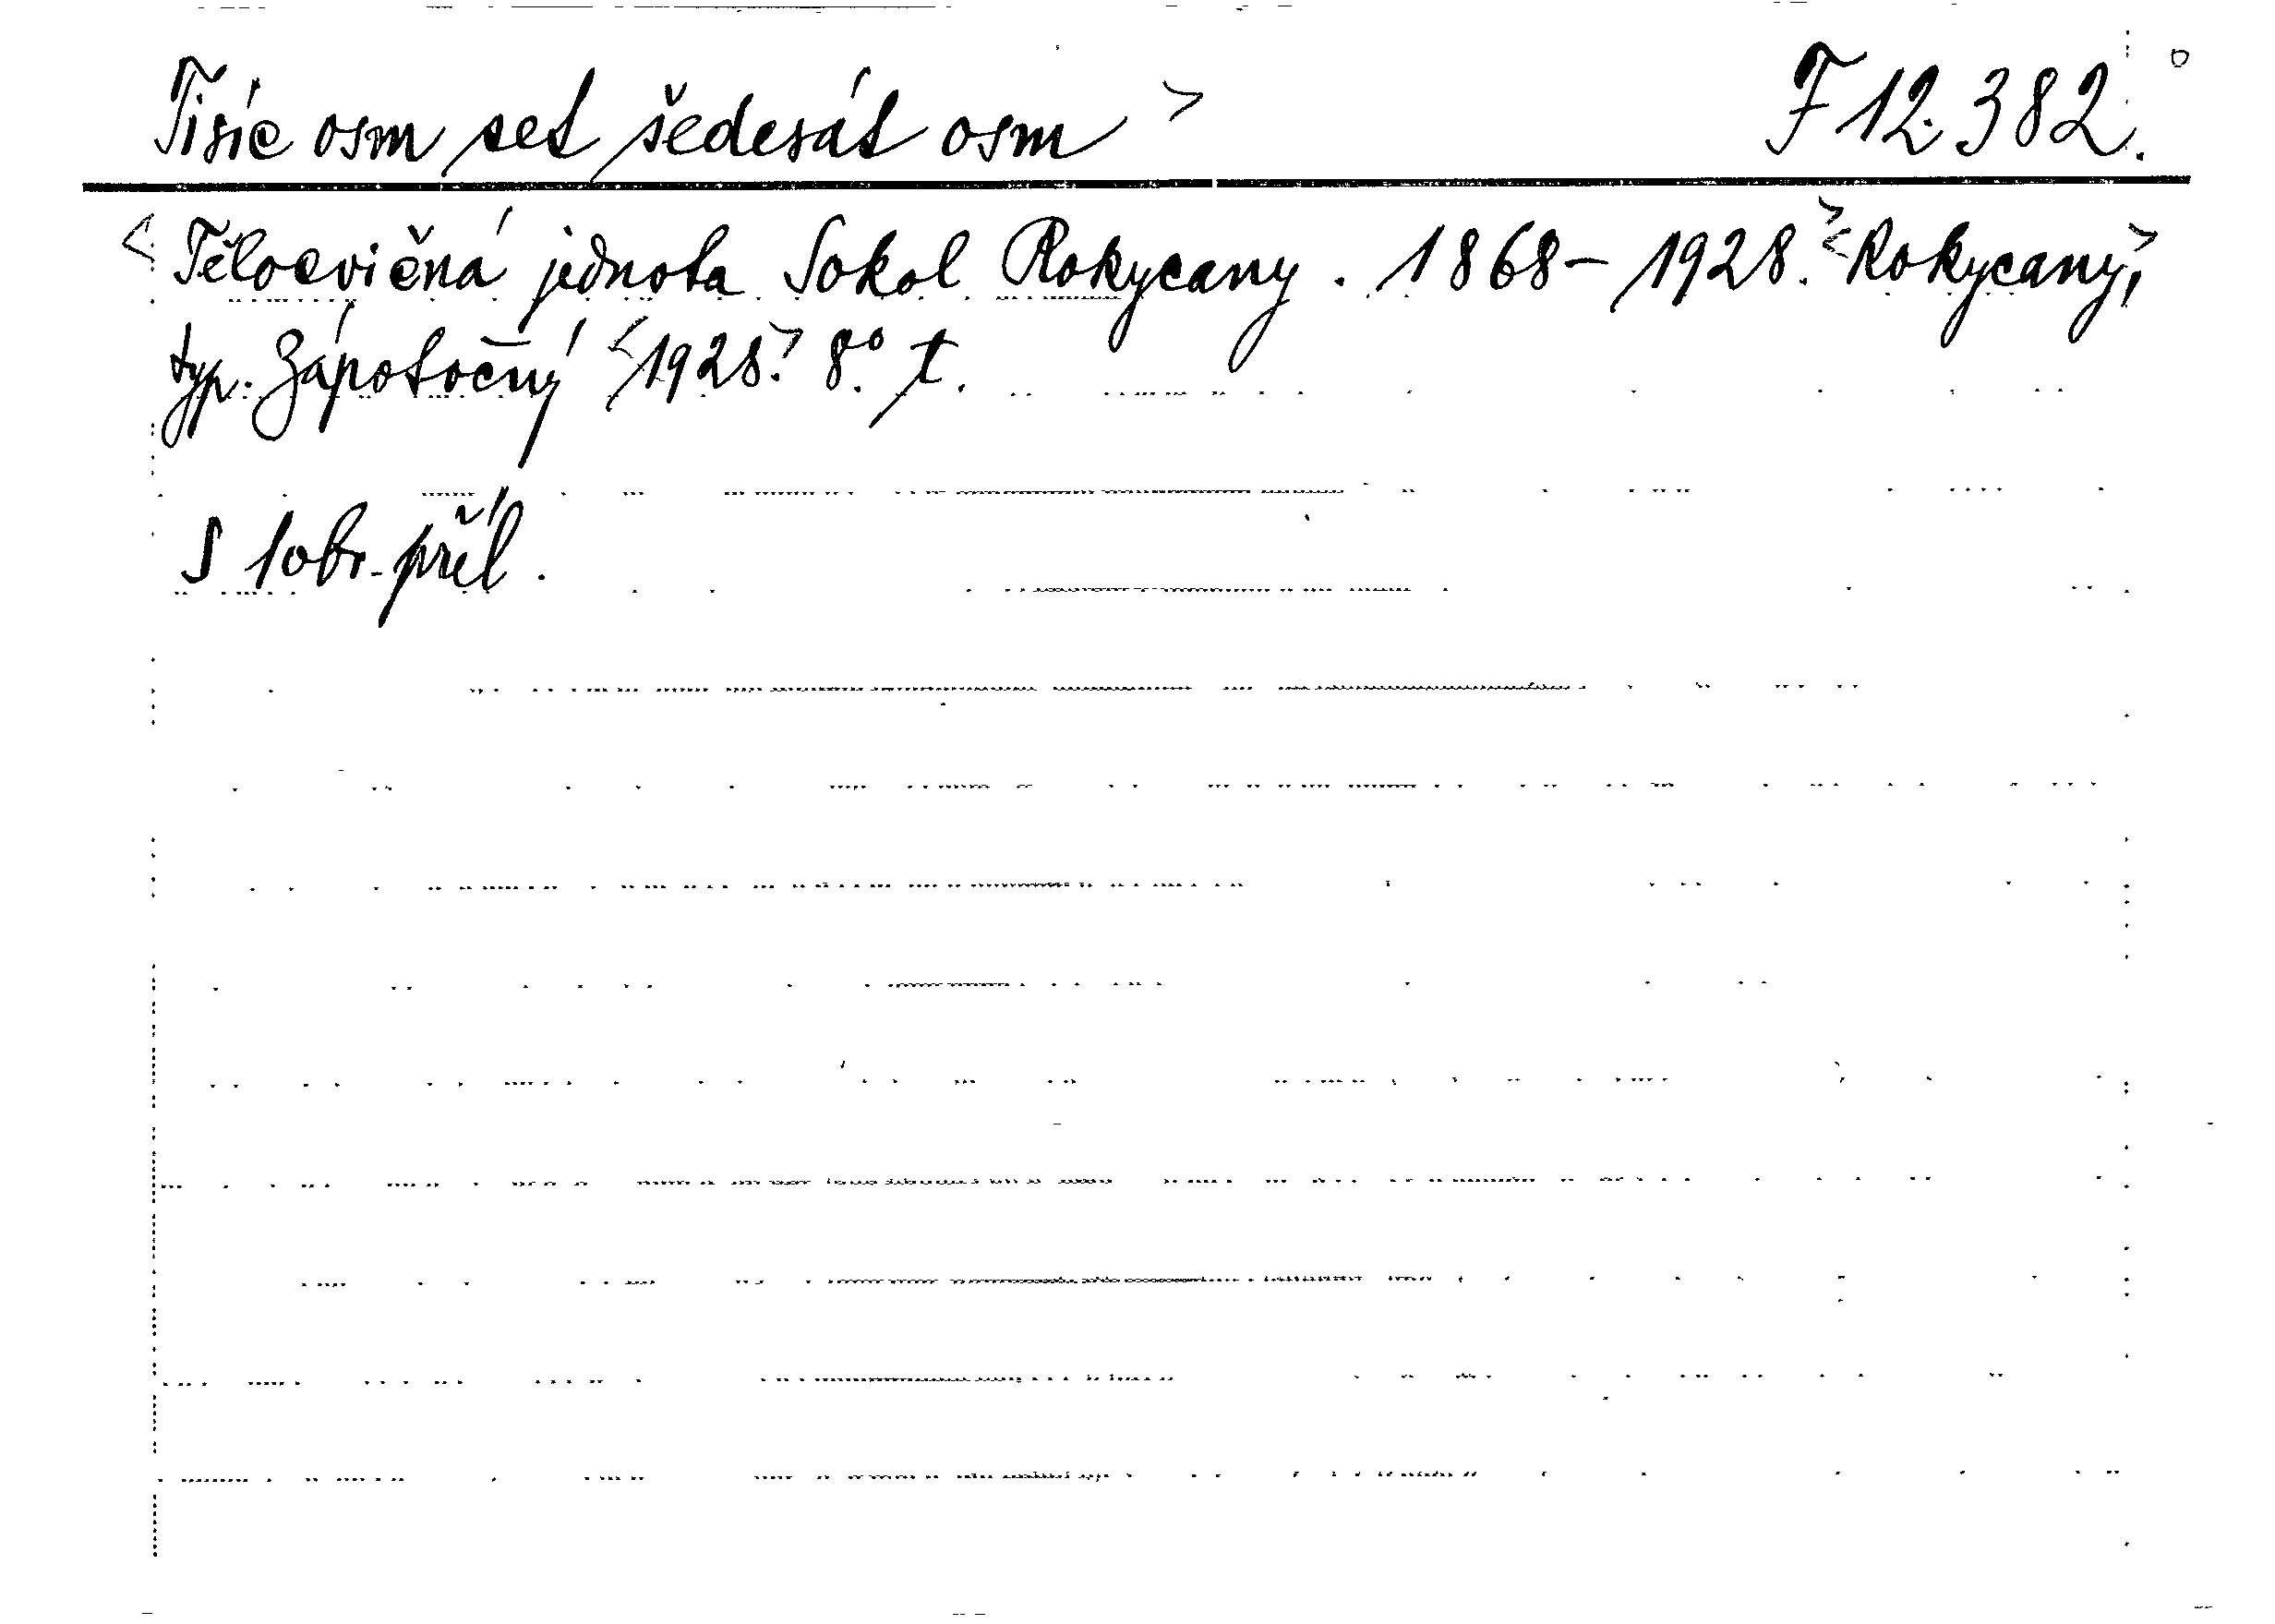 Tisíc osm set šedesát osm > F 12.382.
<Tělocvičná jednota Sokol Rokycany. 1868-1928.> <Rokycany>,
typ. Zápotočný <1928.> 8.° t.
S 1 obr. příl.